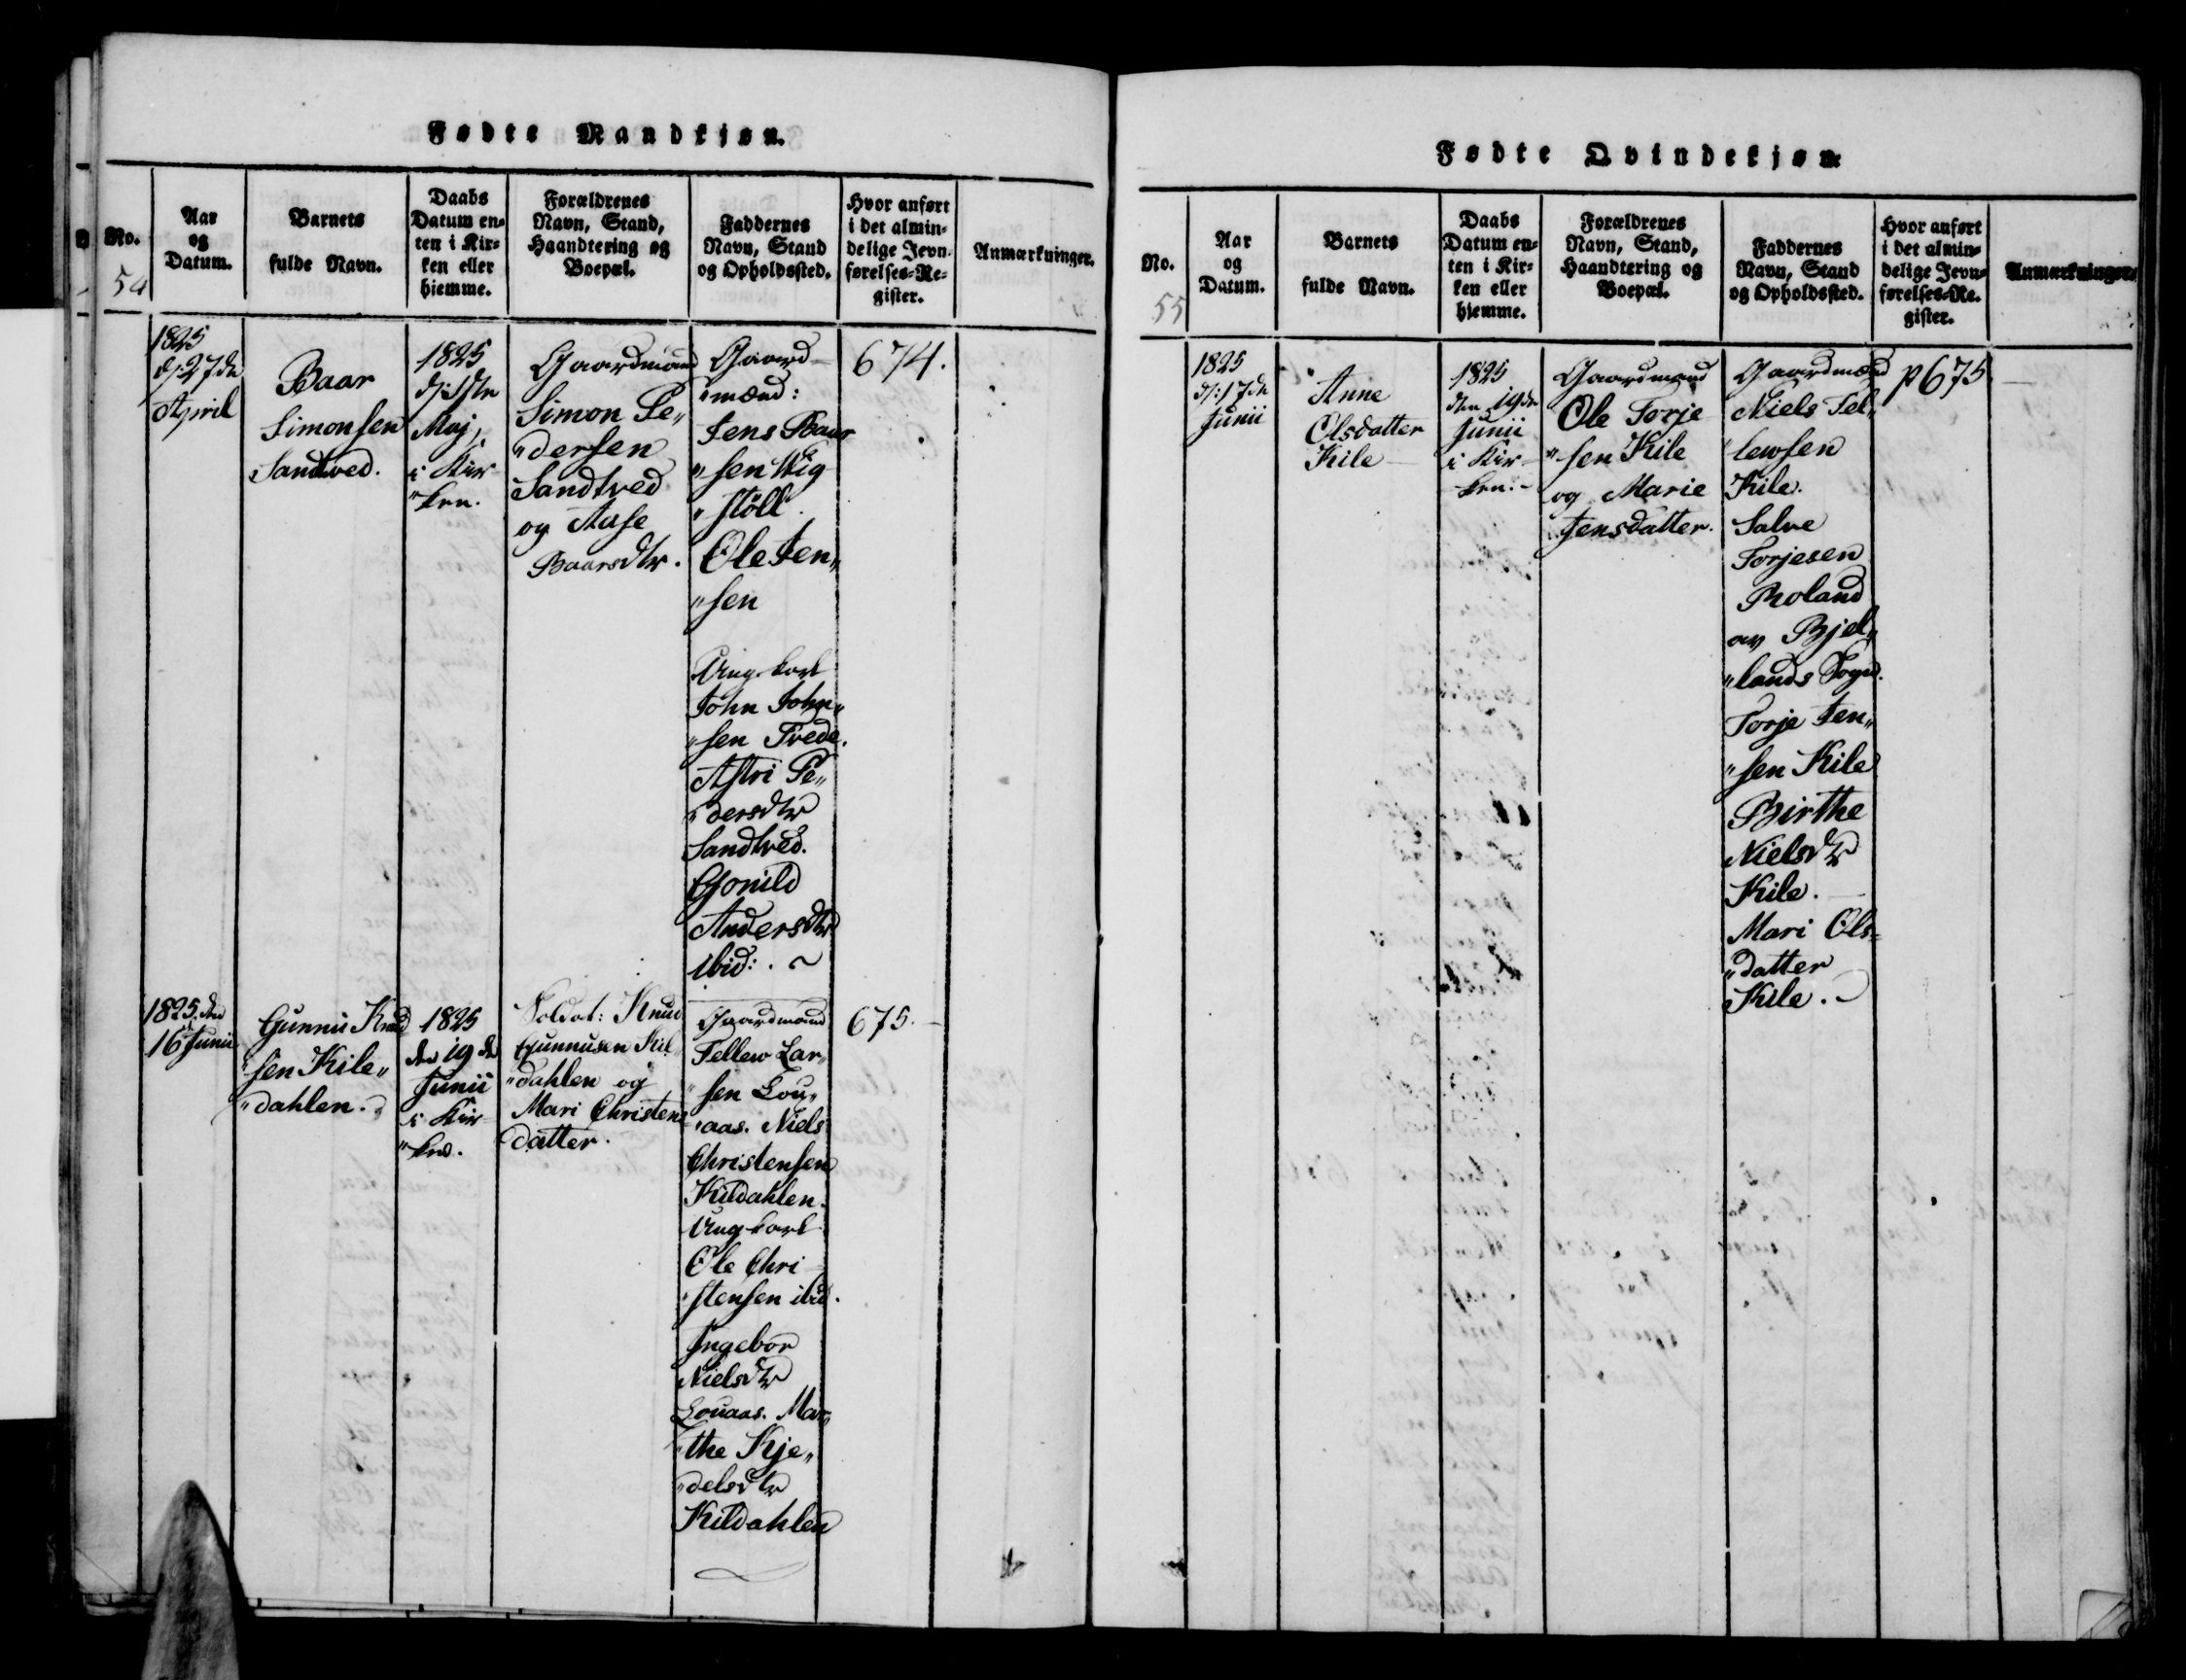 Fødte Mandkjøn.
No.
54
Aar
og
Datum.
Barnets
fulde Navn.
Daabs
Datum en-
ten i Kir-
ken eller
hiemme.
Forældrenes
Navn, Stand,
Haandtering og
Boepæl.
Faddernes
Navn, Stand
og Opholdssted.
Hvor anført
i det almin-
delige Jevn-
førelses-Re-
gister.
Anmærkninger.
1825
d: 27de
April
Baar
Simonsen
Sandtved.
1825
d: 1ste
Maj,
i Kir-
"ken.
Gaardmand
Simon Pe„
"dersen
Sandtved
og Aase
Baarsdtr.
Gaard-
"mænd:
Jens Baar
"sen Wig
"støll.
Ole Jen„
"sen
Ungkarl
John John„
"sen Tvede.
Astri Pe„
"dersdtr
Sandtved.
Gonild
Andersdtr
ibid: . ~
674.
1825 den
16 Junii
Gunnu Knud
"sen Kile„
"dahlen.
1825
den 19de
Junii
i Kir-
"ken.
Soldat: Knud
Gunnusen Kil„
"dahlen og
Mari Christens
datter.
Gaardmand
Tellew Lar„
"sen Lou„
"aas. Niels
Christensen
Kildahlen.
Ungkarl
Ole Chri-
"stensen ibid.
Ingebor
Nielsdtr
Louaas. Mar„
"the Kje„
"delsdtr
Kildahlen
675.
Fødte Qvindekjøn.
No.
55
Aar
og
Datum.
Barnets
fulde Navn.
Daabs
Datum en-
ten i Kir-
ken eller
hjemme.
Forældrenes
Navn, Stand,
Haandtering og
Boepæl.
Faddernes
Navn, Stand
og Opholdssted.
Hvor anført
i det almin-
delige Jevn-
førelses-Re-
gister.
Anmærkninger.
1825
d: 17de
Junii
Anne
Olsdatter
Kile
1825
den 19de
Junii
i Kir-
ken.
Gaardmand
Ole Torje
"sen Kile
og Marie
Jensdatter.
Gaardmænd
Niels Tel„
"lewsen
Kile.
Salve
Torjesen
Roland
av Bjel„
"lands Sogn.
Torje Jen„
"sen Kile
Birthe
Nielsdtr
Kile.
Mari Ols-
"datter
Kile.
p 675